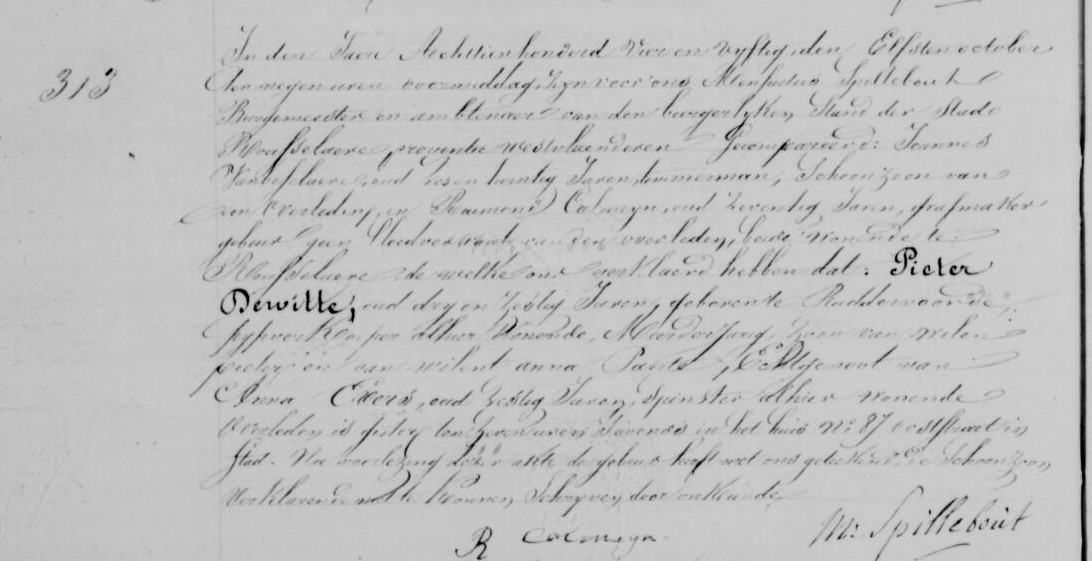 313
In den Jaere Achttienhonderd Vier en Vyftig, den Elfsten october
ten negen uren voormiddag, zyn voor ons Spillebout
Burgemeester en ambtenaer van den burgerlyken Stand der Stad
Rousselaere provintie westvlaenderen Gecompareerd: Joannes
oud en twintig Jaren, timmerman, Schoonzoon van
den Overleden, en Raimond Colmeyn, oud Zeventig Jaren, grafmaker
gebuer geen bloedverwant van den overleden, beide wonende te
Rousselaere de welke ons verklaerd hebben dat: Pieter
Dewitte, oud dry en Zestig Jaren, geboren te Ruddervoorde,
alhier Wonende, Meerderjarig, Zoon van wilen
pieter en van wilent anna Echtgenoot van
Anna oud Zestig Jaren, Spinster alhier Wonende
Overleden is gister ten zeven uren s'avonds in het huis No 87 ooststraat in
stad. Na voorlezing dezer akte de gebuer heeft met ons geteekend, De Schoonzoon
Verklarende niet te konnen Schryven door onkunde
R Colmeyn. M: Spillebout